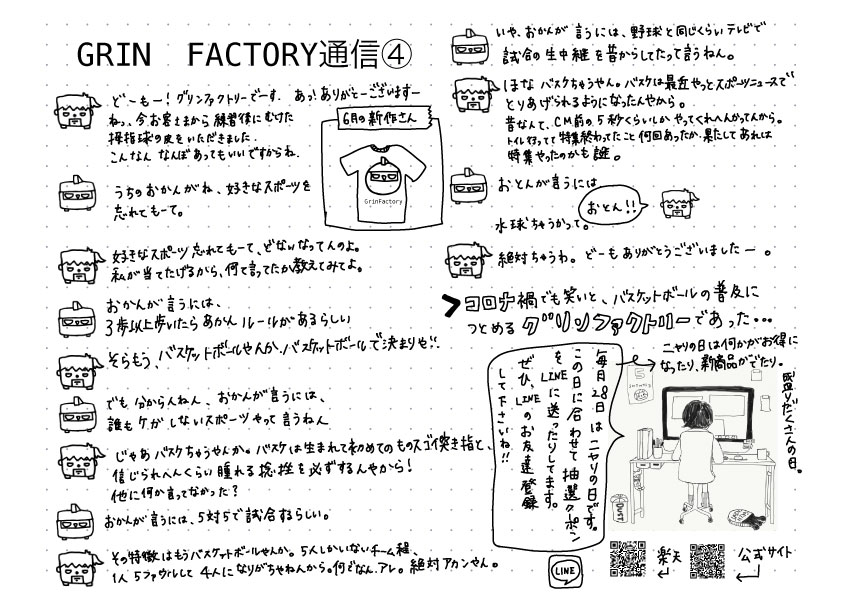 GRIN FACTORY通信④
ど〜もー!グリンファクトリーでーす。あっ!ありがとーございますー
ねっ、今お客さまから練習後にむけた
拇指球の皮をいただきました.
こんなん なんぼあってもいいですからね.
6月の新作さん
GrinFactory
うちのおかんがね、好きなスポーツを
忘れてもーて。
好きなスポーツ忘れてもーて、どないなってんのよ。
私が当てたげるから、何て言ってたか教えてみてよ。
おかんが言うには、
3歩以上歩いたらあかんルールがあるらしい
そらもう、バスケットボールやんか.バスケットボールで決まりや!!
でも分からんねん、おかんが言うには、
誰もケガしないスポーツやって言うねん
じゃあバスケちゃうやんか。バスケは生まれて初めてのものスゴイ突き指と、
信じられへんくらい腫れる捻挫を必ずするんやから!
他に何か言ってなかった?
おかんが言うには、5対5で試合するらしい。
その特徴はもうバスケットボールやんか。5人しかいないチーム程、
1人5ファウルして4人になりがちやねんから。何でなん.アレ。絶対アカンやん。
いや、おかんが言うには、野球と同じくらいテレビで
試合の生中継を昔からしてたって言うねん。
ほな バスケちゃうやん。バスケは最近やっとスポーツニュースで
とりあげられるようになったんやから。
昔なんて、CM前の5秒くらいしかやってくれへんかってんから。
トイレ行ってて特集終わってたこと何回あったか.果たしてあれは
特集やったのかも謎。
おとんが言うには
おとん!!
水球ちゃうかって。
絶対ちゃうわ。どーもありがとうございましたー。
コロナ禍でも笑いと、バスケットボールの普及に
つとめるグリンファクトリーであった...
ニヤリの日は何かがお得に
なったり、新商品がでたり。
盛りだくさんの日。
毎月28日はニヤリの日です。
この日に合わせて抽選クーポン
をLINEに送ったりしてます。
ぜひ、LINEのお友達登録
して下さいね!!
5
DUST
LINE
楽天
公式サイト